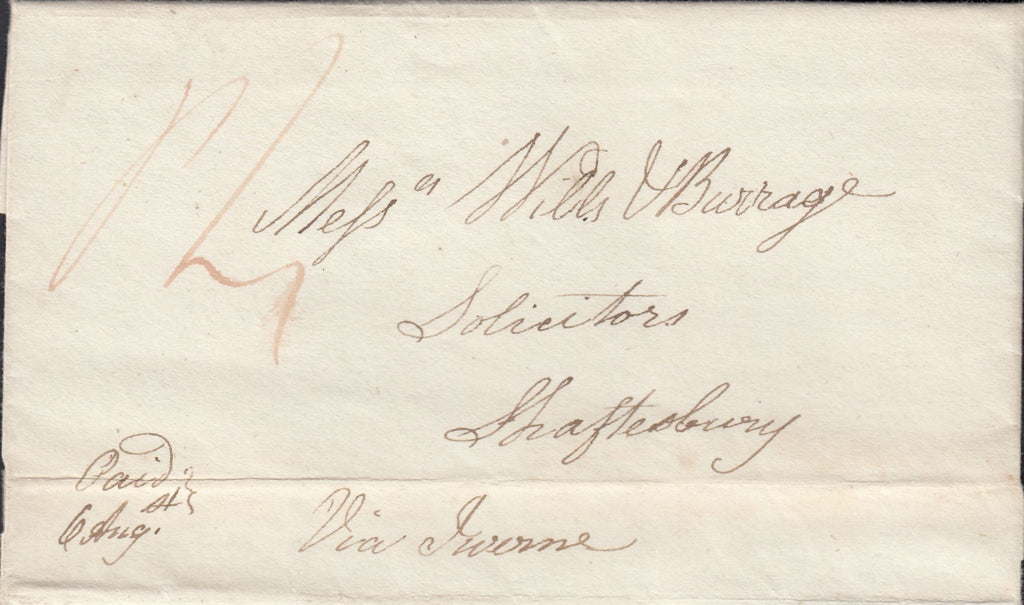 Messrs Wills & Burrage
Solicitors
Shaftesbury
Paid
6 Augst
Via Iwerne